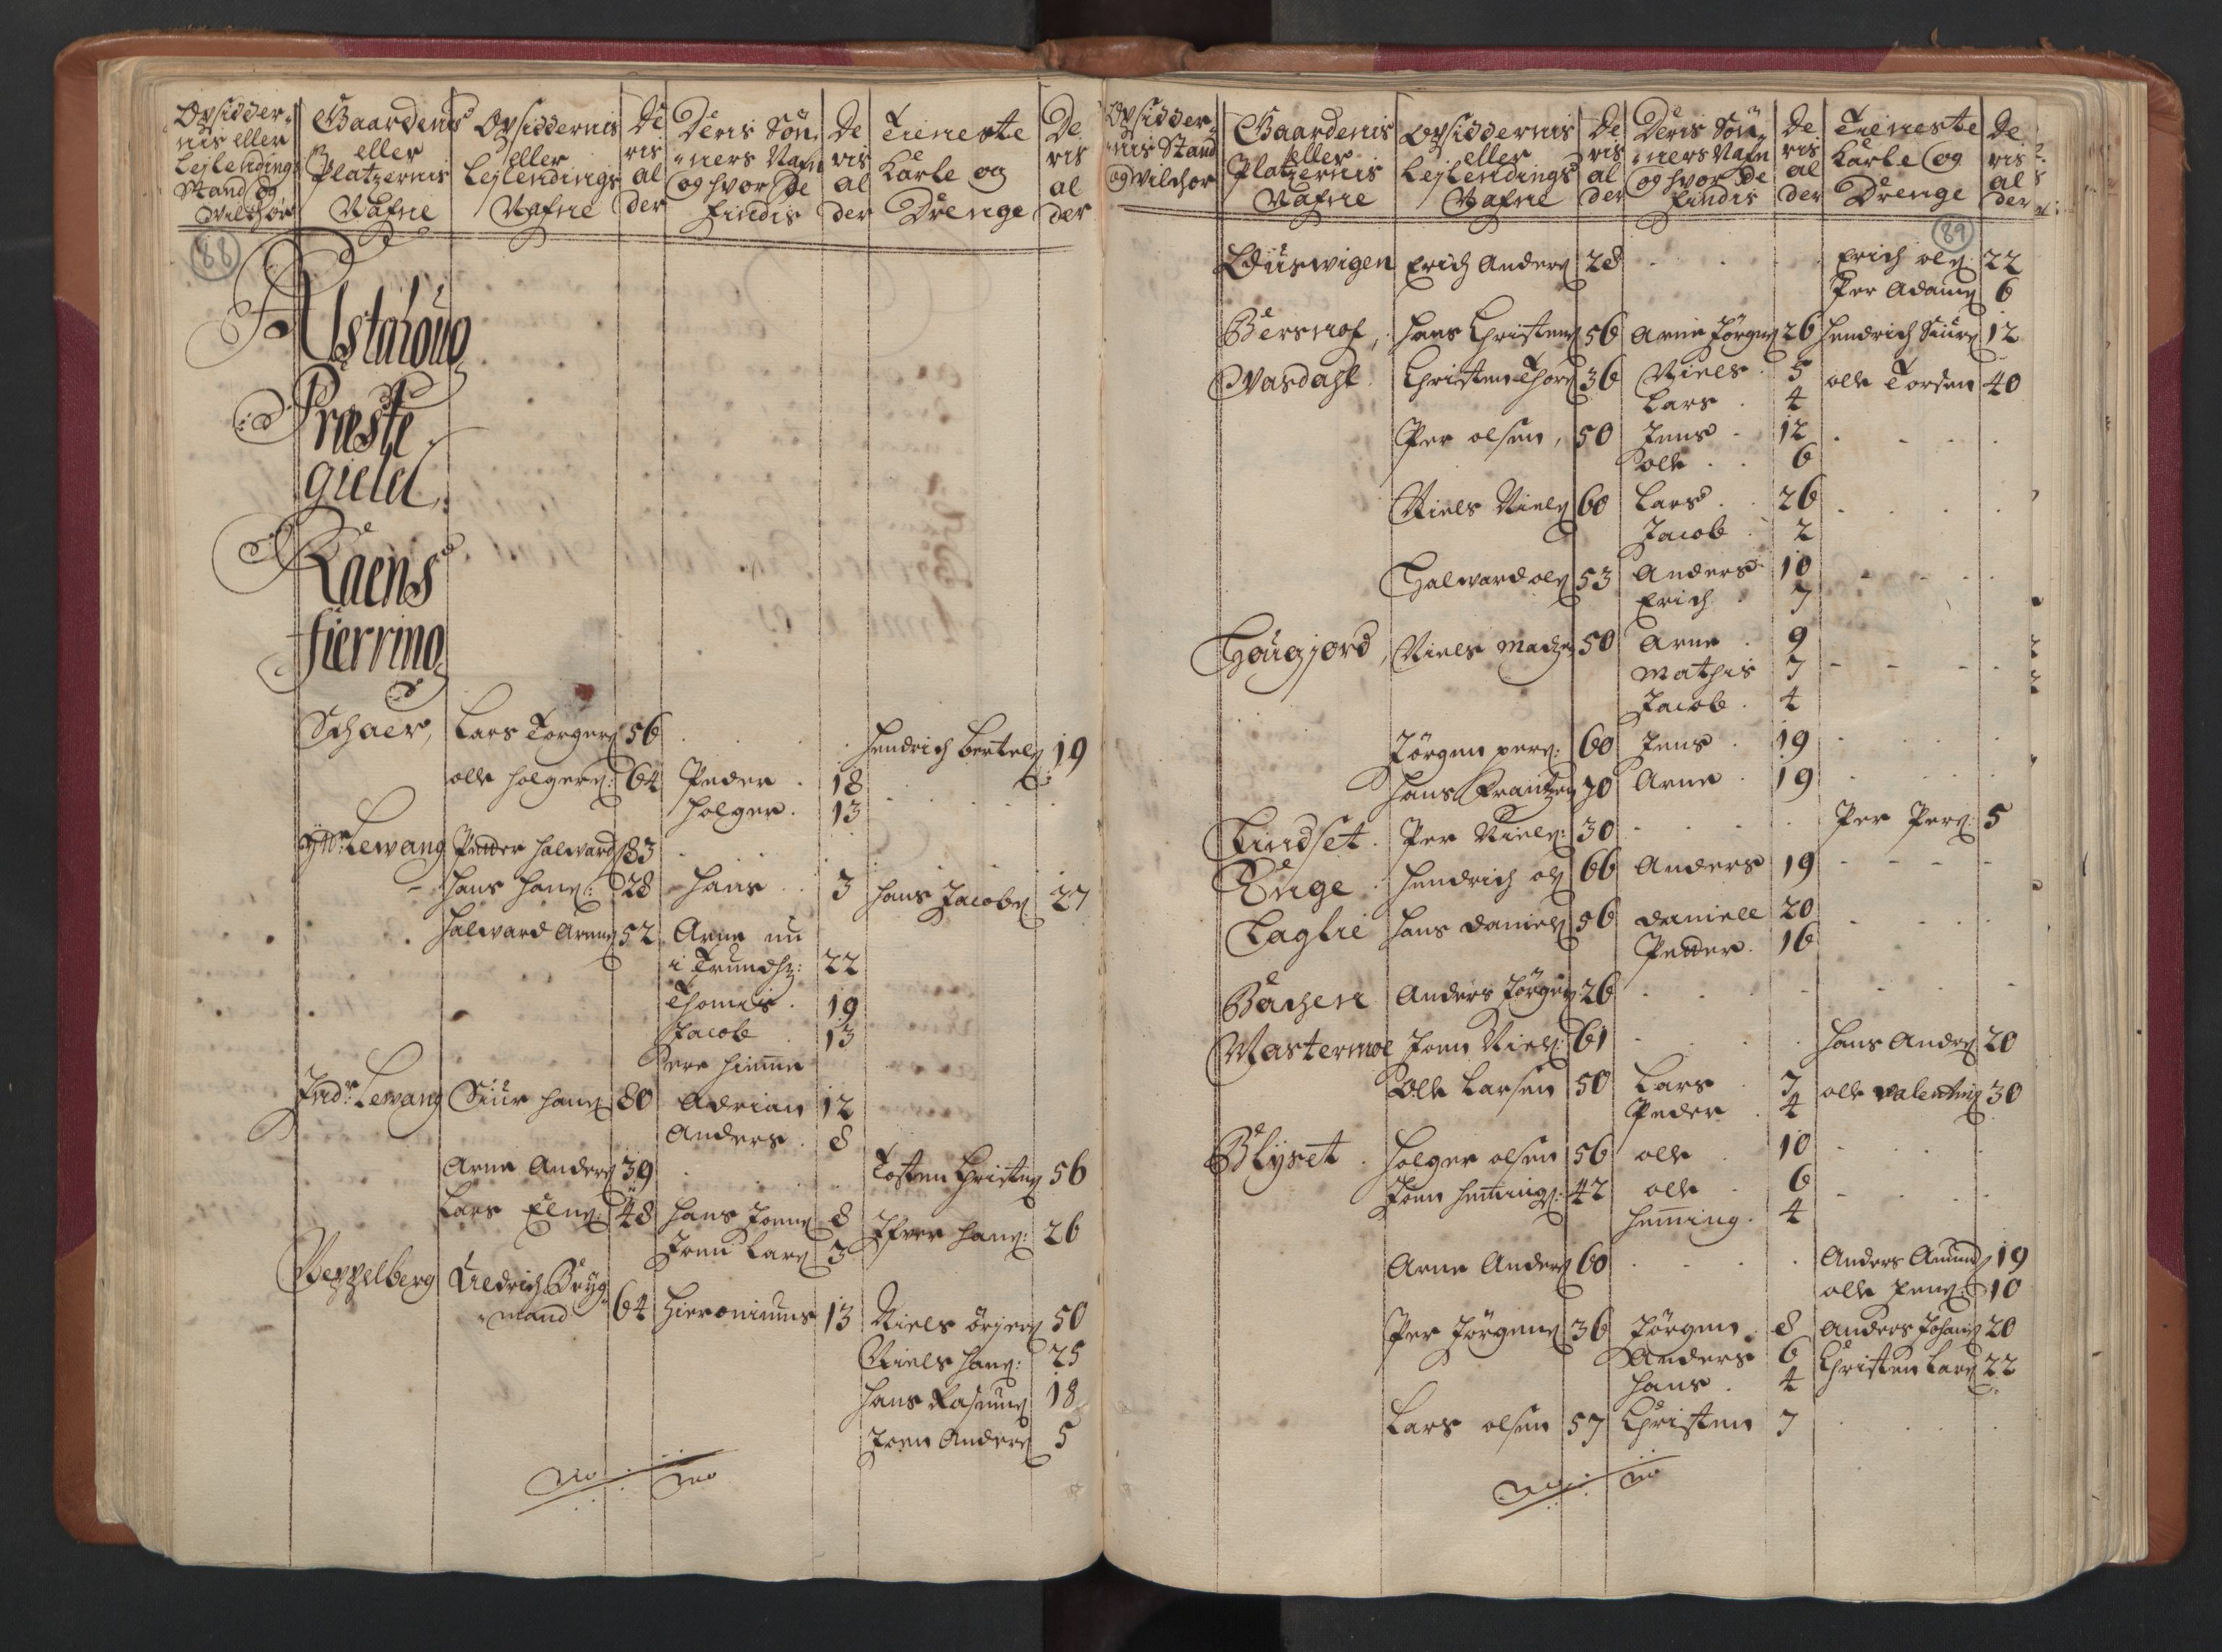 Opsidder-
nis eller
Lejlendings
Stand og
Vilchor
Gaardenes
eller
Platzernis
Nafne
Opsiddernis
eller
Lejlendings
Nafne
De
ris
al
der
Deris Søn
ners Nafn
og hvor de
findis
De
ris
al
der
Tieneste
Karle og
Drenge
De
ris
al
der
88
Alstahoug
Præste
gield
Næens
fierring
Schaer, Lars Torgers 56 . . . Hendrich Bertels 19
olle Holgers: 64 Peder . 18
Holger . 13
Ytr Lewang Petter Halwards 83
Hans Hans: 28 Hans . . 3 Hans Jacobs 27
Halward Arnes 52 Arne nu
i Trundh: 22
Thomis . 19
Jacob . 13
ere hieme
Indr Lewang Siur Hans 80 Adrian 12
Anders . 8
Arne Anders 39 . . . Tosten Christens 56
Lars Elns: 48 Hans Joens 8 Ifver Hans: 26
Joen Lars 3
Beppelberg Diedrich Bryg
mand 64 Hieronimus 13 Niels Örjers 50
Niels Hans: 25
Hans Rasmus 18
Joen Anders 5
Opsidder
nis Stand
og Vilchor
Gaardenis
eller
Platzernis
Nafne
Opsiddernis
eller
Lejlendings
Nafne
De
ris
al
der
Deris Søn
ners Nafn
og hvor de
findis
De
ris
al
der
Tieneste
Karle og
Drenge
De
ris
al
der
89
Duswigen Erich Anders 28 . . . Erich ols: 22
Per Adams 6
Bersnof, Hans Christens 56 Arne Jørgens 26 Hendrich Siurs 12
Wasdahl Christen Thors 36 Niels . 5 olle Torsen 40
Lars . 4
Per olsen, 50 Jens . 12
olle . . 6
Niels Niels 60 Lars . . 26
Jacob . 2
Halward ols 53 Anders 10
Erich . 7
Hougjord, Niels Madzen 50 Arne . 9
Mathis 7
Jacob . 4
Jørgen pers: 60 Jens . 19
Hans Frantzen 70 Arne . 19
Findset . Per Niels: 30 . . . Per Pers: 5
Enge . Hendrich ols 66 Anders 19
Laglie Hans Daniels 56 Daniell 20
Petter . 16
Bachen Anders Jørgens 26
Wastermoe Joen Niels: 61 . . . Hans Anders 20
Olle Larsen 50 Lars . 7 olle valentins 30
Peder . 4
Blyset . Holger olsen 56 olle . 10
Joen Hemings: 42 olle . 6
Heming . 4
Arne Anders 60 . . . Anders Amunds 19
olle Jens: 10
Per Jørgens 36 Jørgen . 8 Anders Johans 20
Anders 6 Christen Lars 22
Hans . 4
Lars olsen 57 Christen 7